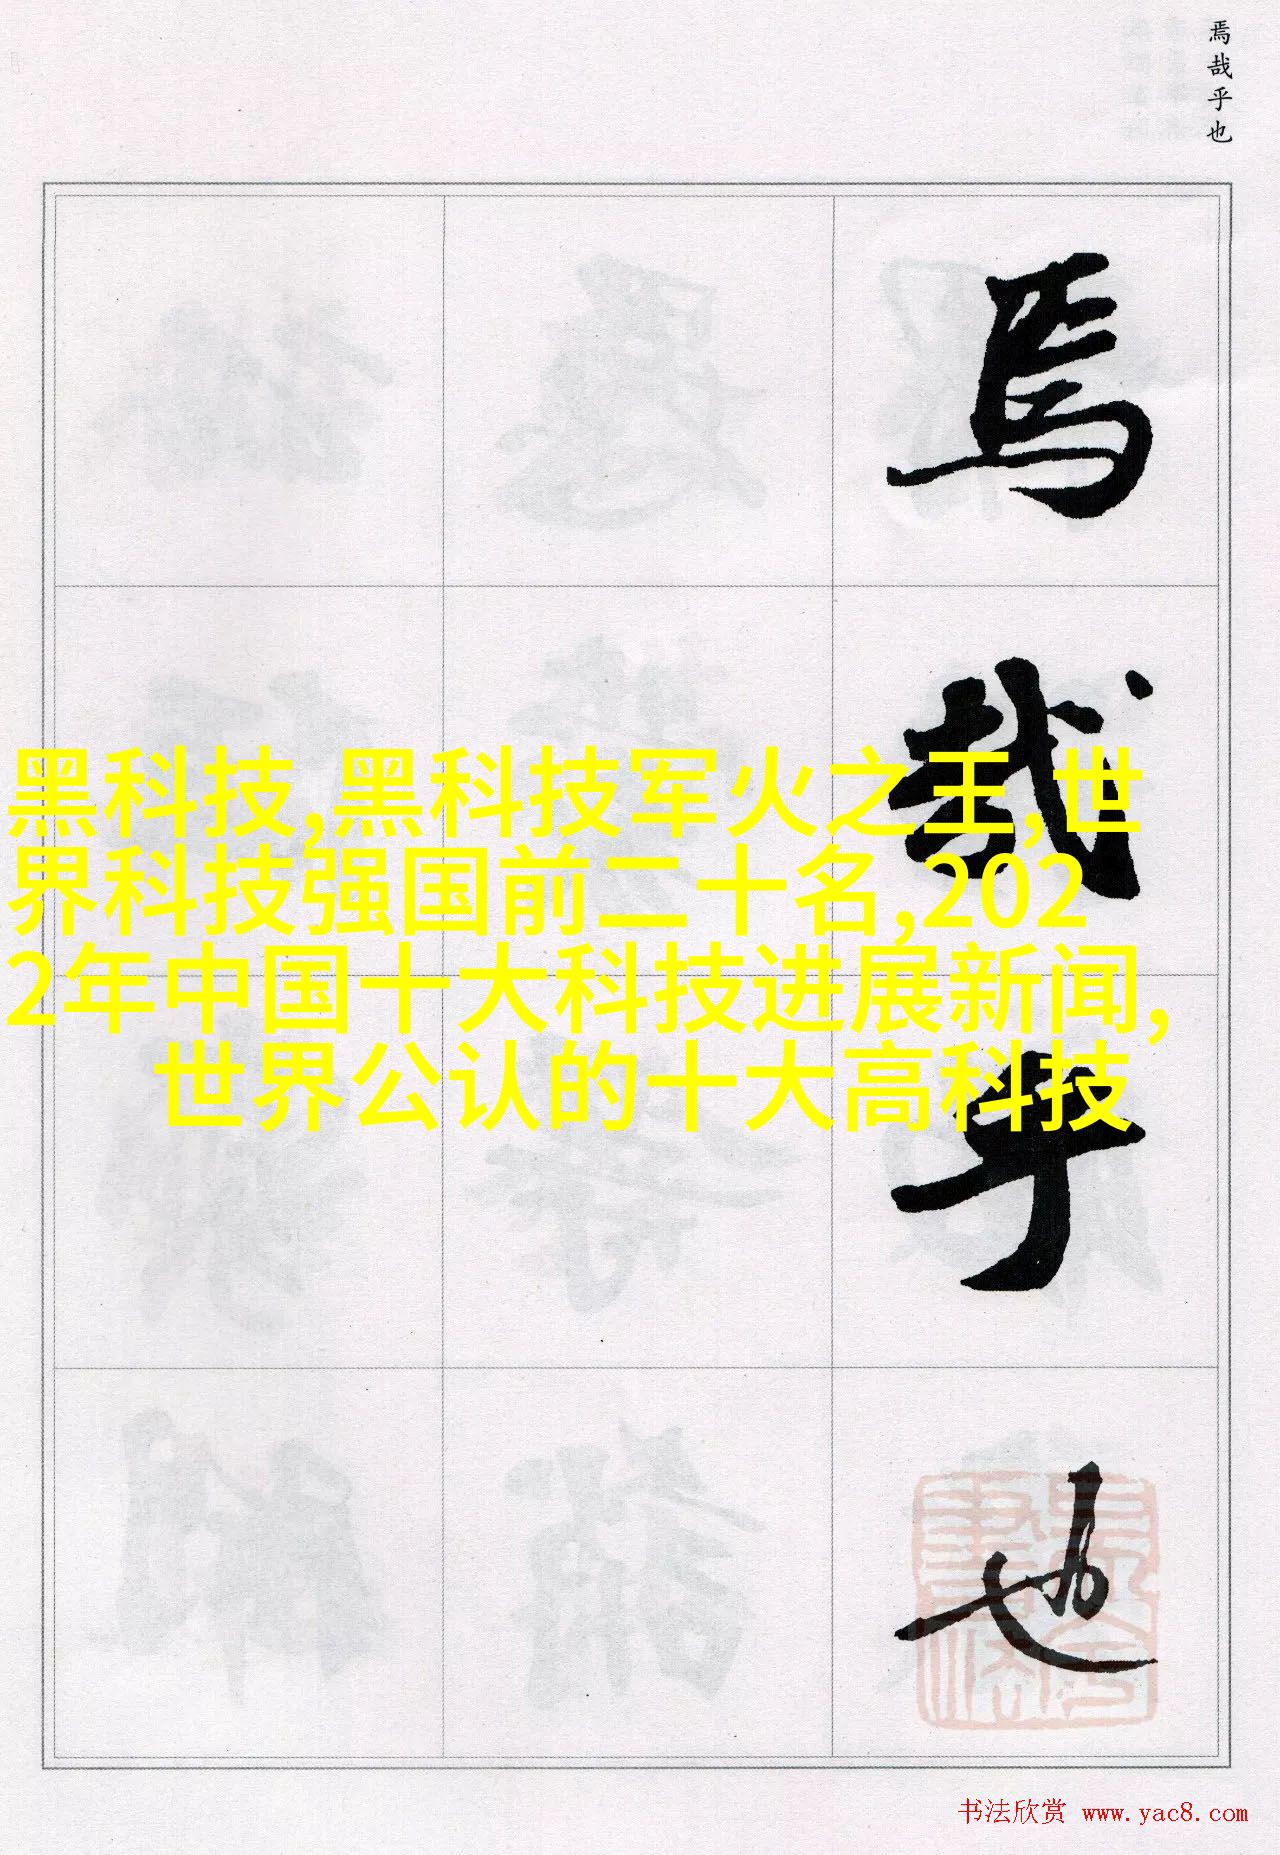 焉哉乎也
焉
哉
乎
也
黑科技,黑科技军火之王,世
界科技强国前二十名,202
2年中国十大科技进展新闻,
世界公认的十大高科技
书法欣赏 www.yac8.com